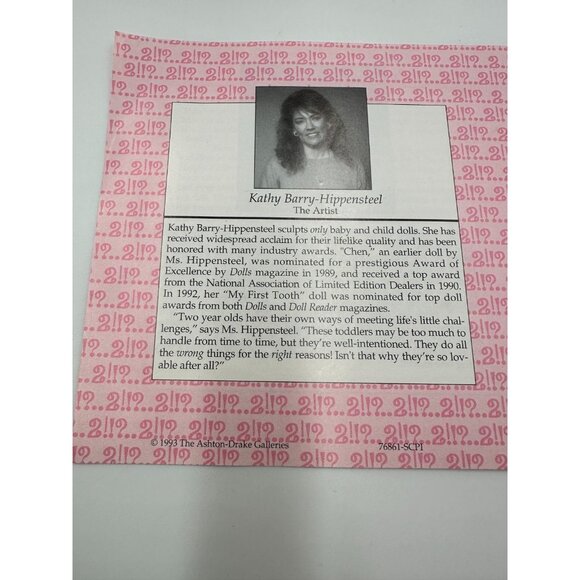 Kathy Barry-Hippensteel
The Artist
Kathy Barry-Hippensteel sculpts only baby and child dolls. She has
received widespread acclaim for their lifelike quality and has been
honored with many industry awards. "Chen," an earlier doll by
Ms. Hippensteel, was nominated for a prestigious Award of
Excellence by Dolls magazine in 1989, and received a top award
from the National Association of Limited Edition Dealers in 1990.
In 1992, her "My First Tooth" doll was nominated for top doll
awards from both Dolls and Doll Reader magazines.
"Two year olds have their own ways of meeting life's little chal-
lenges," says Ms. Hippensteel. "These toddlers may be too much to
handle from time to time, but they're well-intentioned. They do all
the wrong things for the right reasons! Isn't that why they're so lov-
able after all?"
© 1993 The Ashton-Drake Galleries 76861-SCPI